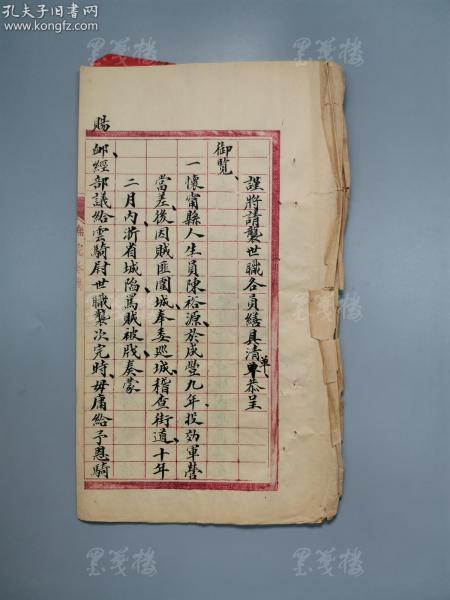 孔夫子旧书网
www.kongfz.com
謹將請襲世職各員繕具清單恭呈
御覽
一懷甯縣人生員陳裕源於咸豐九年投効軍營
當差後因賊匪圍城奉委巡城稽查街道十年
二月內浙省城陷罵賊被戕奏蒙
賜
卹經部議給雲騎尉世職襲次完時毋庸給予恩騎
墨笺楼
墨笺楼
墨笺楼
墨笺楼
墨笺楼
墨笺楼